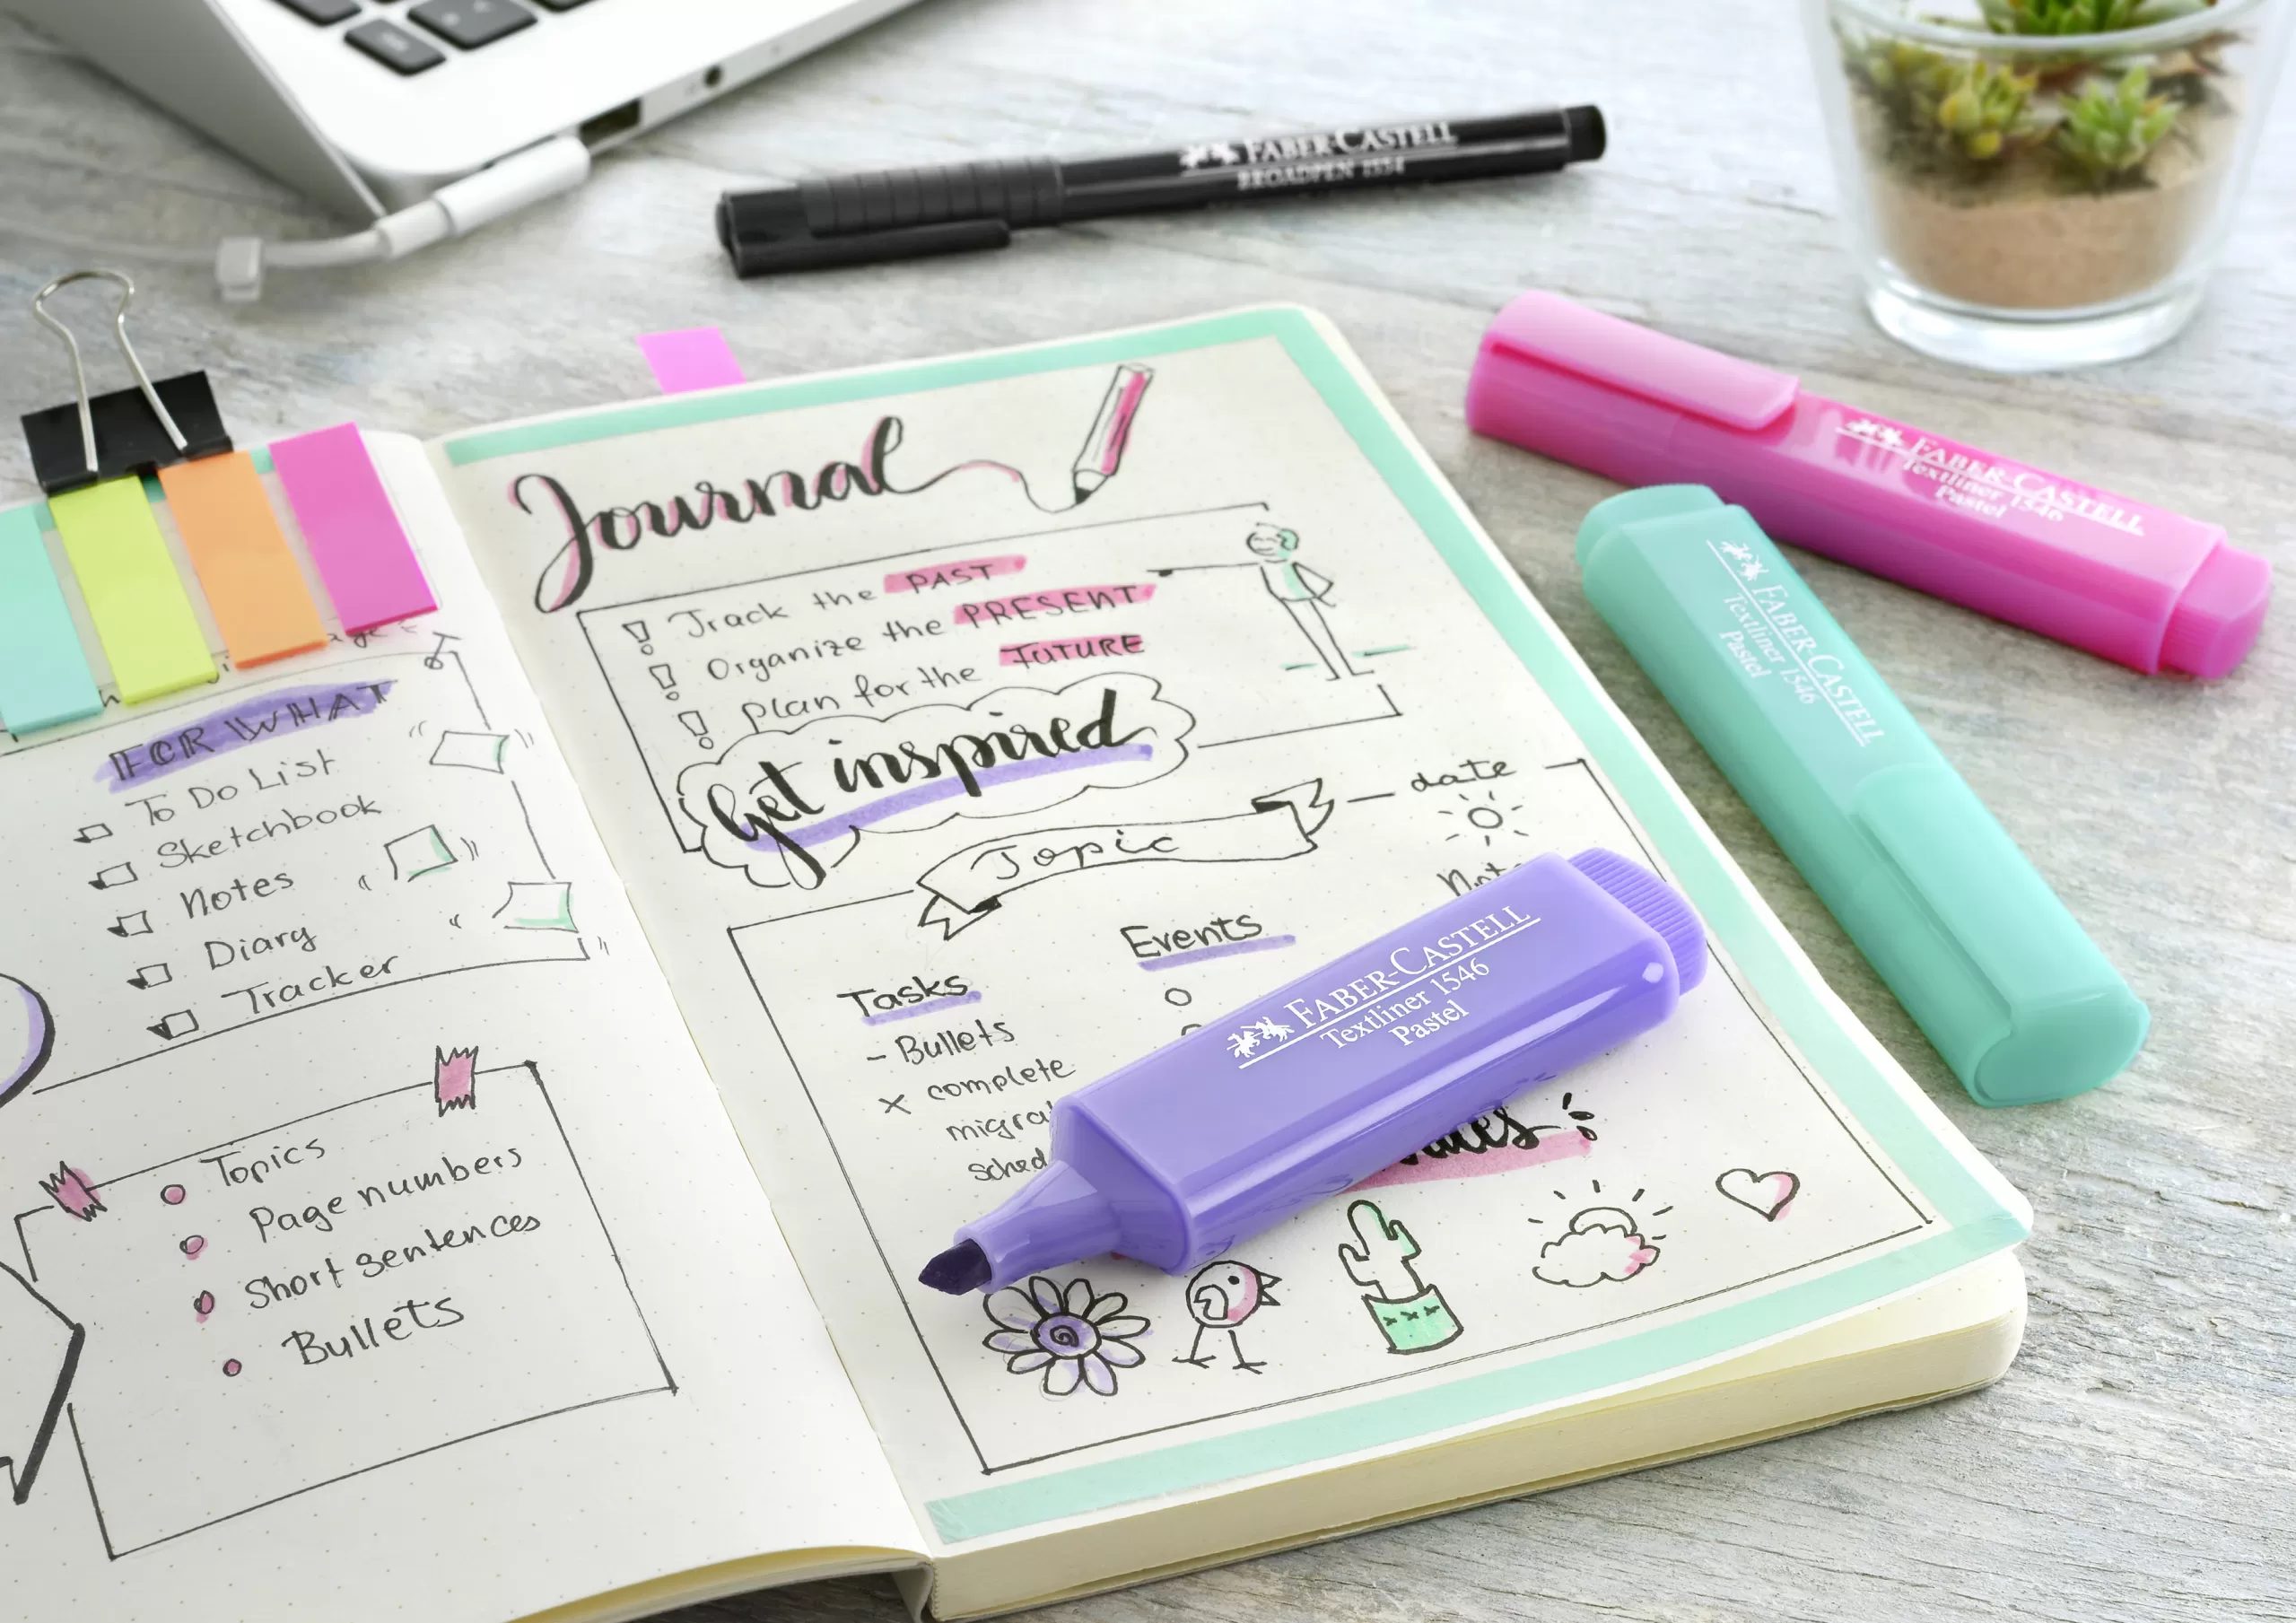 FOR WHAT
To Do List
Sketchbook
Notes
Diary
Tracker
Topics
Page numbers
Short sentences
Bullets
Journal
! Track the PAST
! Organize the PRESENT
! Plan for the FUTURE
Get inspired
Topic
date
Events
Tasks
- Bullets
x complete
FABER-CASTELL
BROADPEN 1554
FABER-CASTELL
Textliner 1546
Pastel
FABER-CASTELL
Textliner 1546
Pastel
FABER-CASTELL
Textliner 1546
Pastel